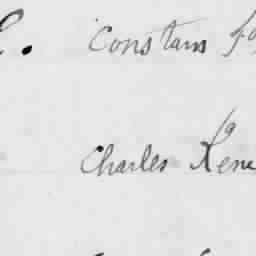 Constans
Charles Rene